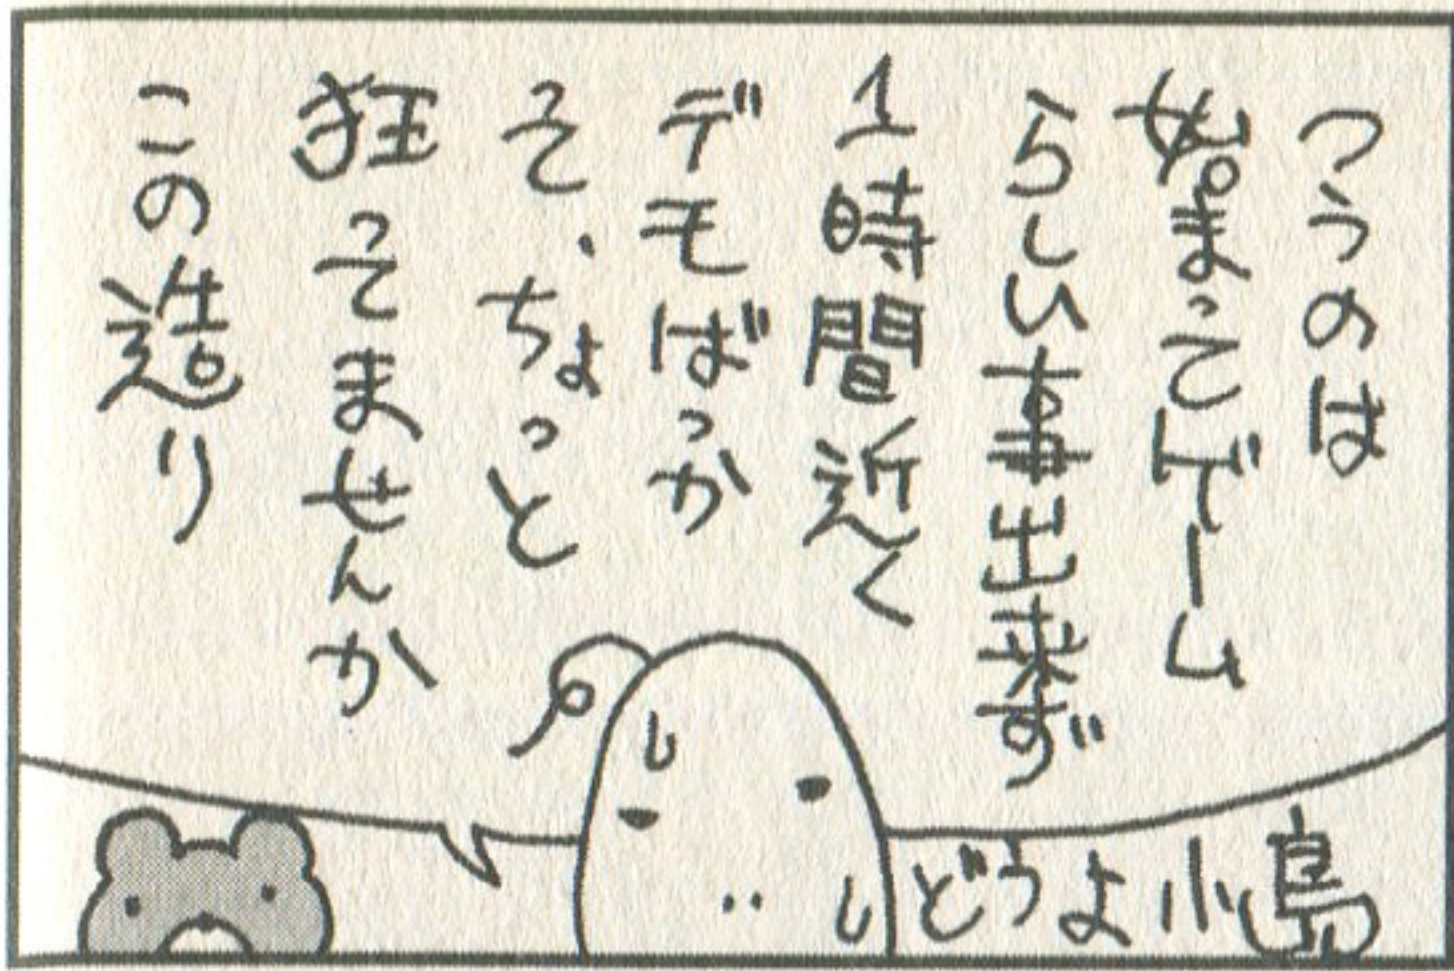 つうのは
始まってゲーム
らしい事出来ず
1時間近く
デモばっか
て、ちょっと
狂ってませんか
この造り
どうよ小島